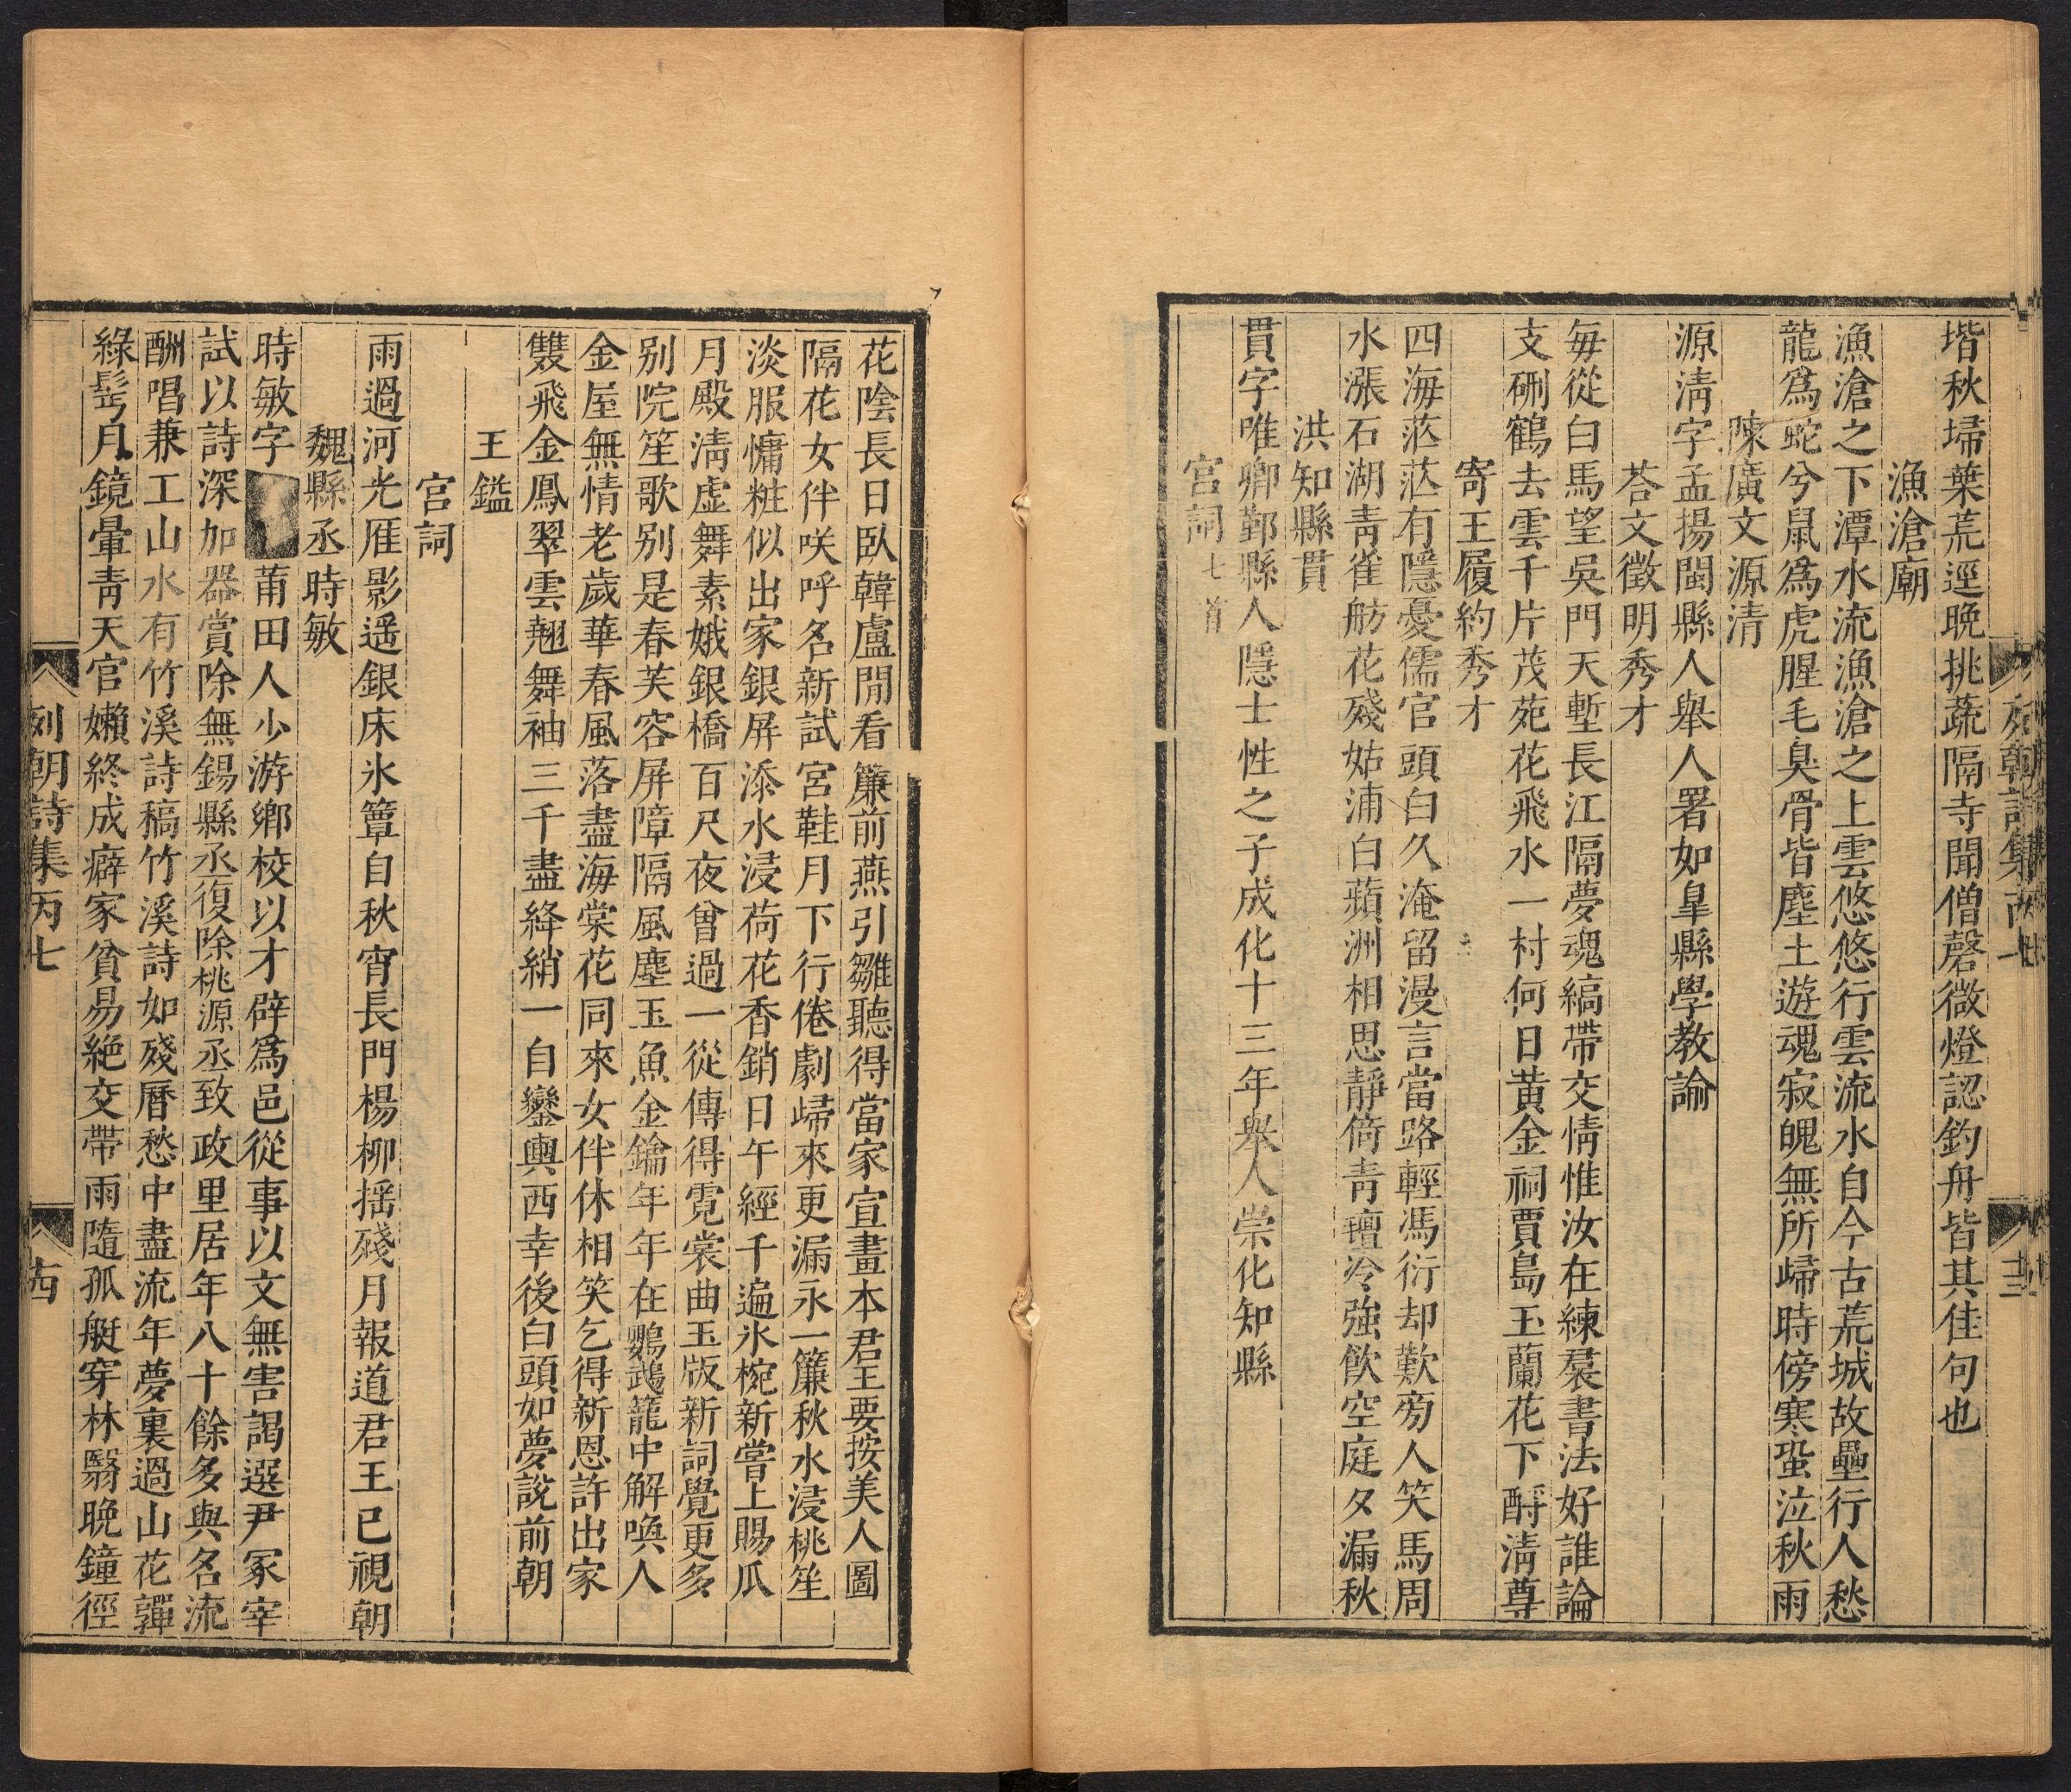 堦秋埽葉荒逕晚挑蔬隔寺聞僧磬微燈認釣舟皆其佳句也
漁滄廟
漁滄之下潭水流漁滄之上雲悠悠行雲流水自今古荒城故壘行人愁
龍爲蛇兮鼠爲虎腥毛臭骨皆塵土遊魂寂魄無所歸時傍寒蛩泣秋雨
陳廣文源清
源清字孟揚閩縣人舉人署如臯縣學教諭
荅文徵明秀才
每從白馬望吳門天塹長江隔夢魂縞帶交情惟汝在練裠書法好誰論
支硎鶴去雲千片茂苑花飛水一村何日黄金祠賈島玉蘭花下酹清尊
寄王履約秀才
四海茫茫有隱憂儒官頭白久淹留漫言當路輕馮衍却歎旁人笑馬周
水漲石湖青雀舫花殘姑浦白蘋洲相思靜倚青氊冷強飲空庭夕漏秋
洪知縣貫
貫字唯卿鄞縣人隱士性之子成化十三年舉人崇化知縣
宮詞七首
花陰長日臥韓盧閒看簾前燕引雛聽得當家宣畫本君王要按美人圖
隔花女伴咲呼名新試宮鞋月下行倦劇歸來更漏永一簾秋水浸桃笙
淡服慵粧似出家銀屏添水浸荷花香銷日午經千遍氷椀新嘗上賜瓜
月殿清虛舞素娥銀橋百尺夜曾過一從傳得霓裳曲玉版新詞覺更多
别院笙歌别是春芙容屏障隔風塵玉魚金鑰年年在鸚鵡籠中解喚人
金屋無情老歲華春風落盡海棠花同來女伴休相笑乞得新恩許出家
雙飛金鳳翠雲翹舞袖三千盡絳綃一自鑾輿西幸後白頭如夢說前朝
王鎰
宮詞
雨過河光雁影遥銀床氷簟自秋宵長門楊柳揺殘月報道君王已視朝
魏縣丞時敏
時敏字莆田人少游鄉校以才辟爲邑從事以文無害謁選尹冢宰
試以詩深加器賞除無錫縣丞復除桃源丞致政里居年八十餘多與名流
酬唱兼工山水有竹溪詩稿竹溪詩如殘曆愁中盡流年夢裏過山花嚲
綠髩月鏡暈青天官嬾終成癖家貧易絶交帶雨隨孤艇穿林翳晚鐘徑
列朝詩集丙七